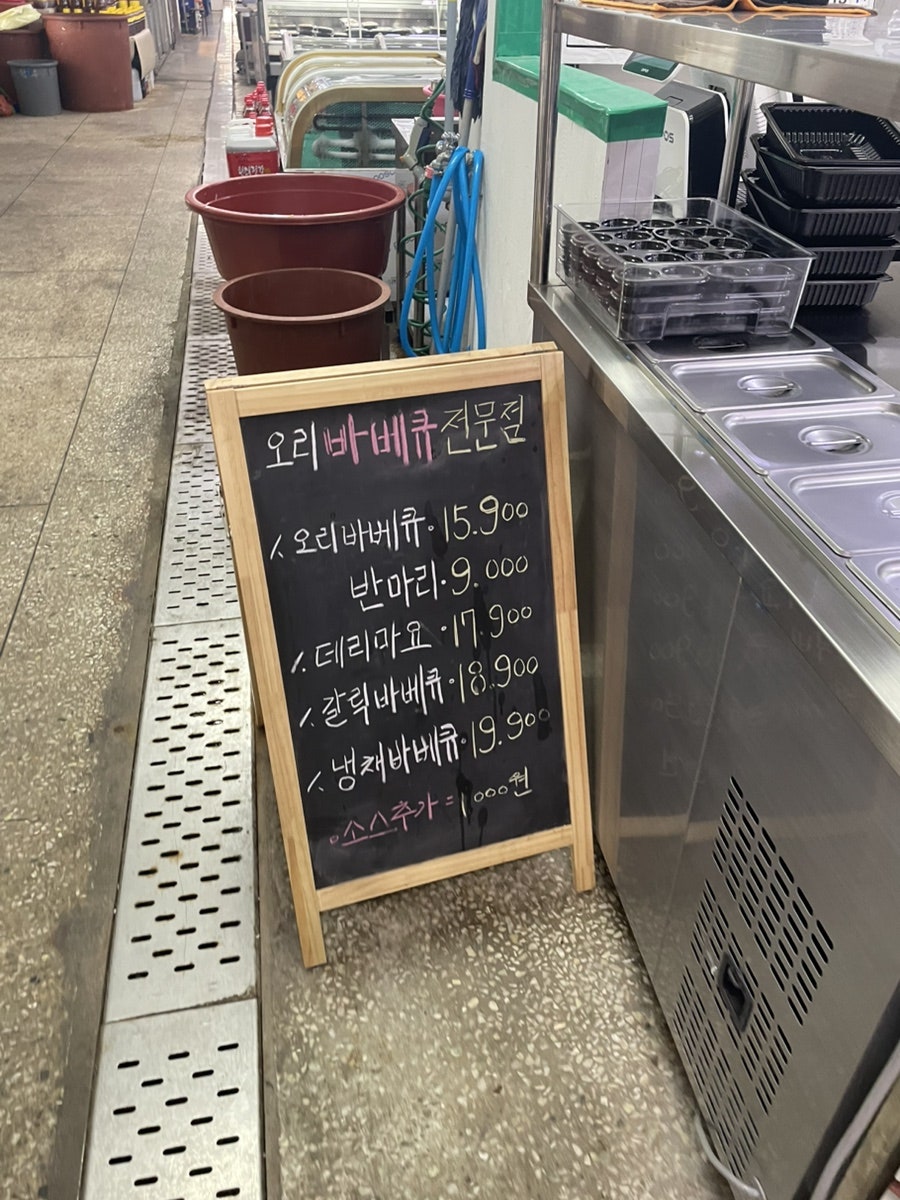 오리바베큐전문점
오리바베큐·15.900
반마리·9.000
데리마요·17.900
갈릭바베큐·18.900
냉채바베큐·19.900
소스추가=1000원